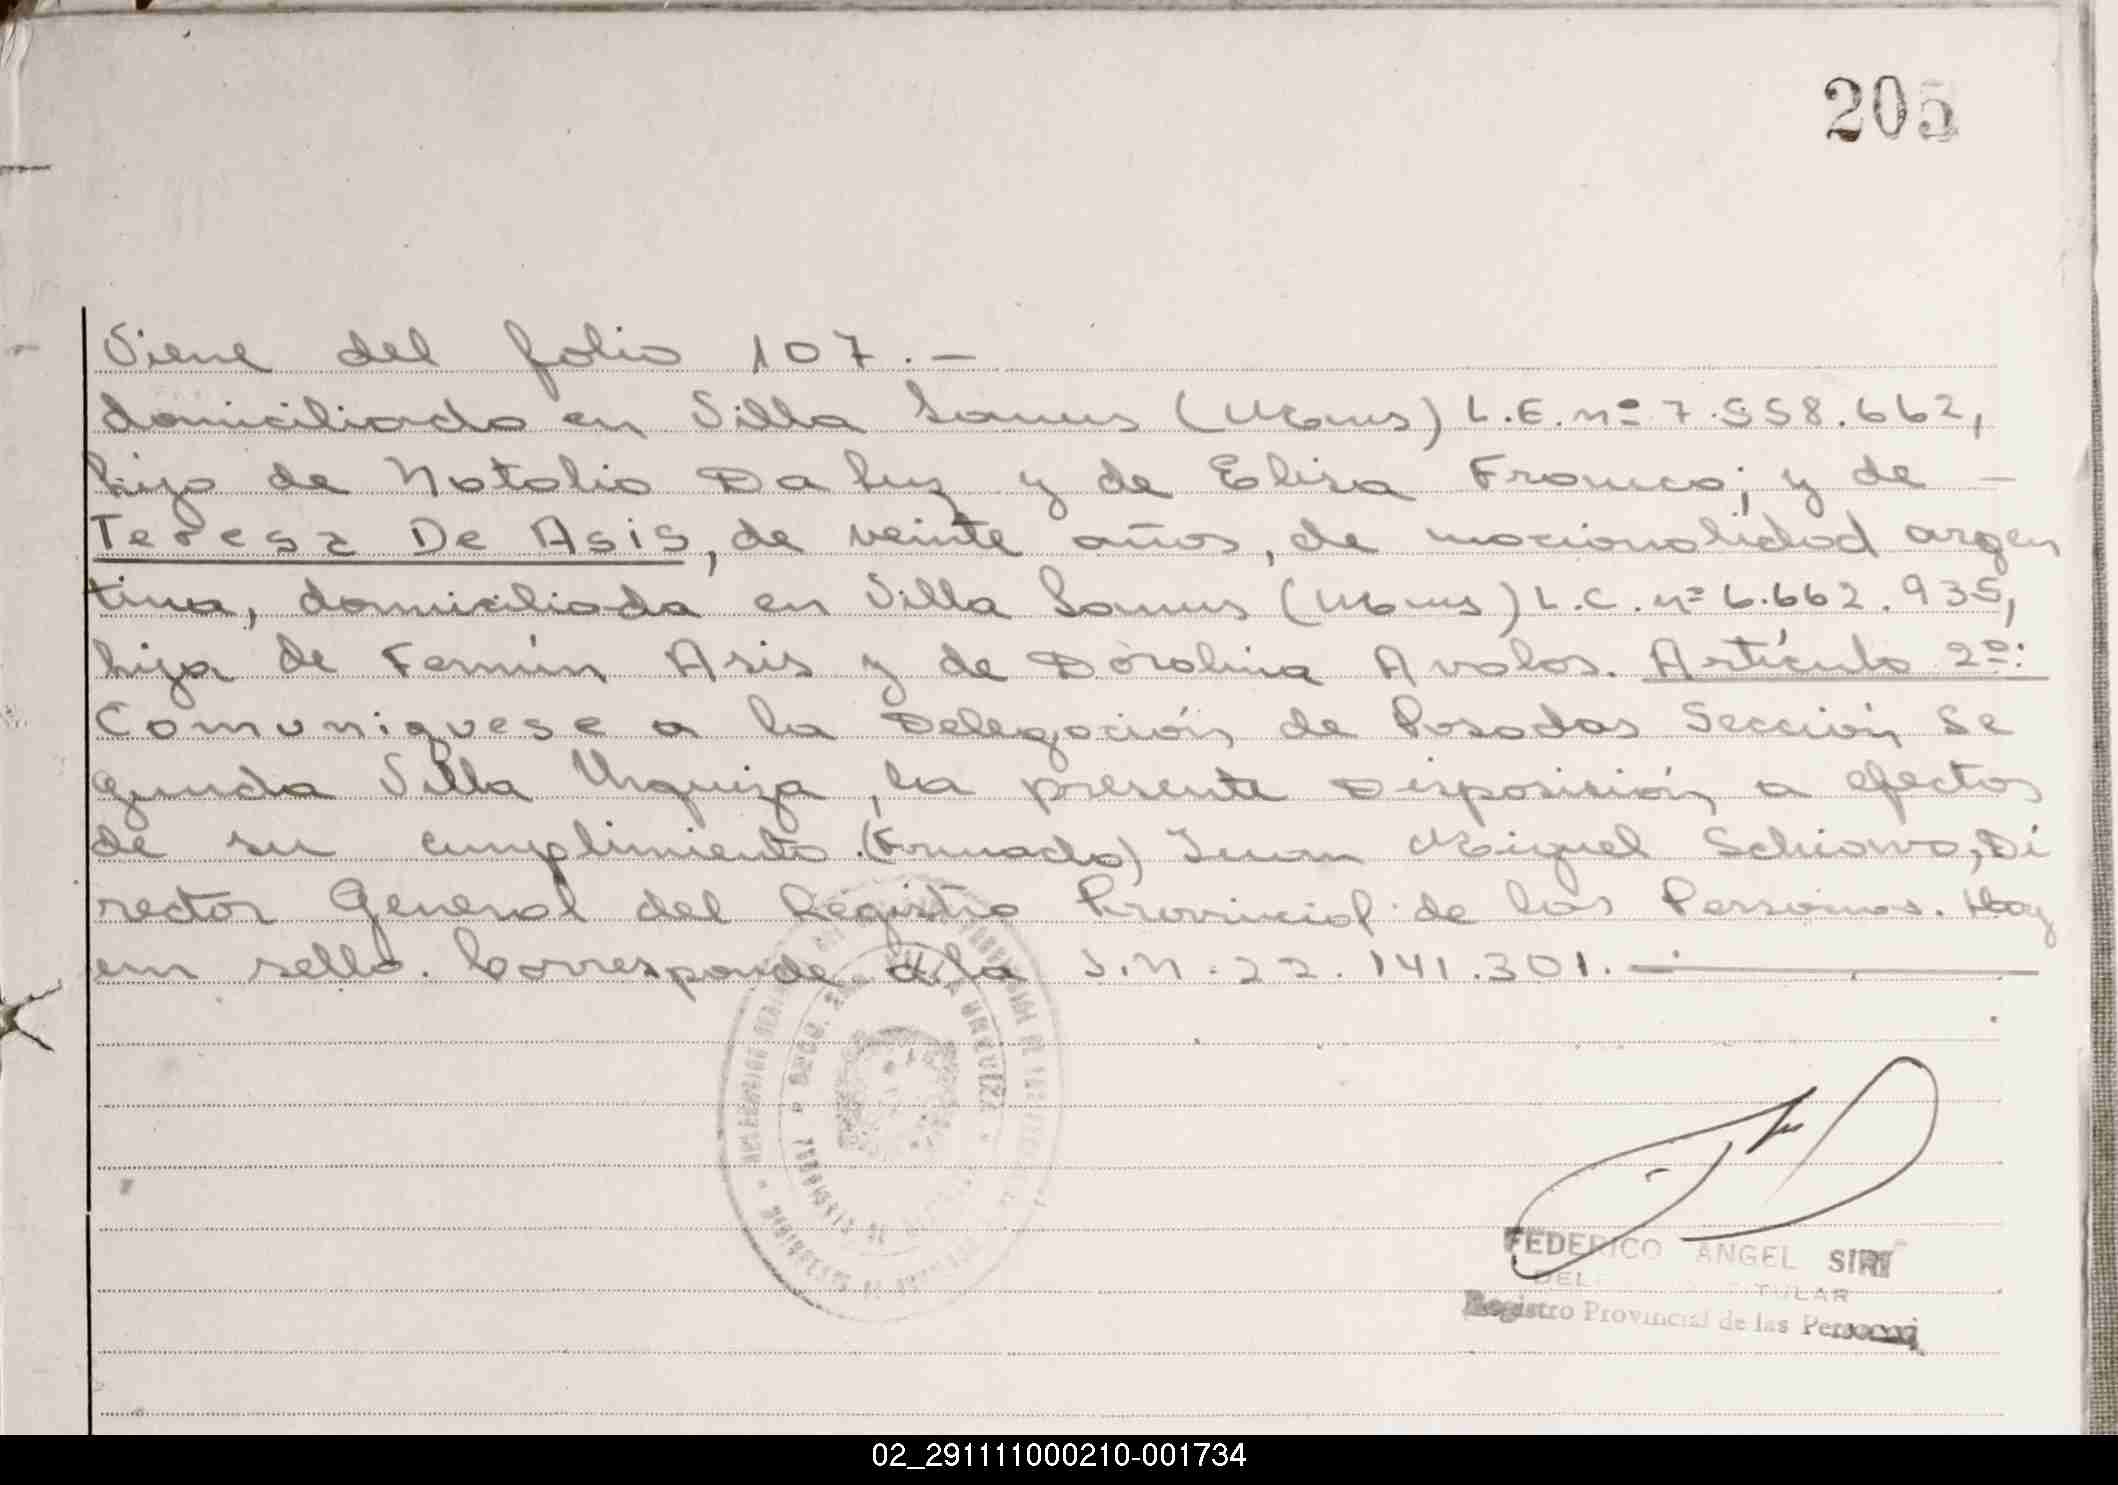 205
Viene del folio 107.-
domiciliado en Villa Lanus (Mnes) L.E. nº 7.558.662,
hijo de Natalio Da Luz y de Elisa Franco; y de -
Teresa De Asis, de veinte años, de nacionalidad argen
tina, domiciliada en Villa Lanus (Mnes) L.C. nº 6.662.935,
hija de Fermín Asis y de Dorolina Avalos. Artículo 2º:
Comuniquese a la Delegación de Posadas Sección Se
gunda Villa Urquiza, la presente Disposición a efectos
de su cumplimiento. (Firmado) Juan Miguel Schiavo, Di
rector General del Registro Provincial de las Personas. Hay
un sello. Corresponde a la D.N. 22.141.301. -
URQUIZA
FEDERICO ANGEL SIRI
TITULAR
Registro Provincial de las Personas
02_291111000210-001734